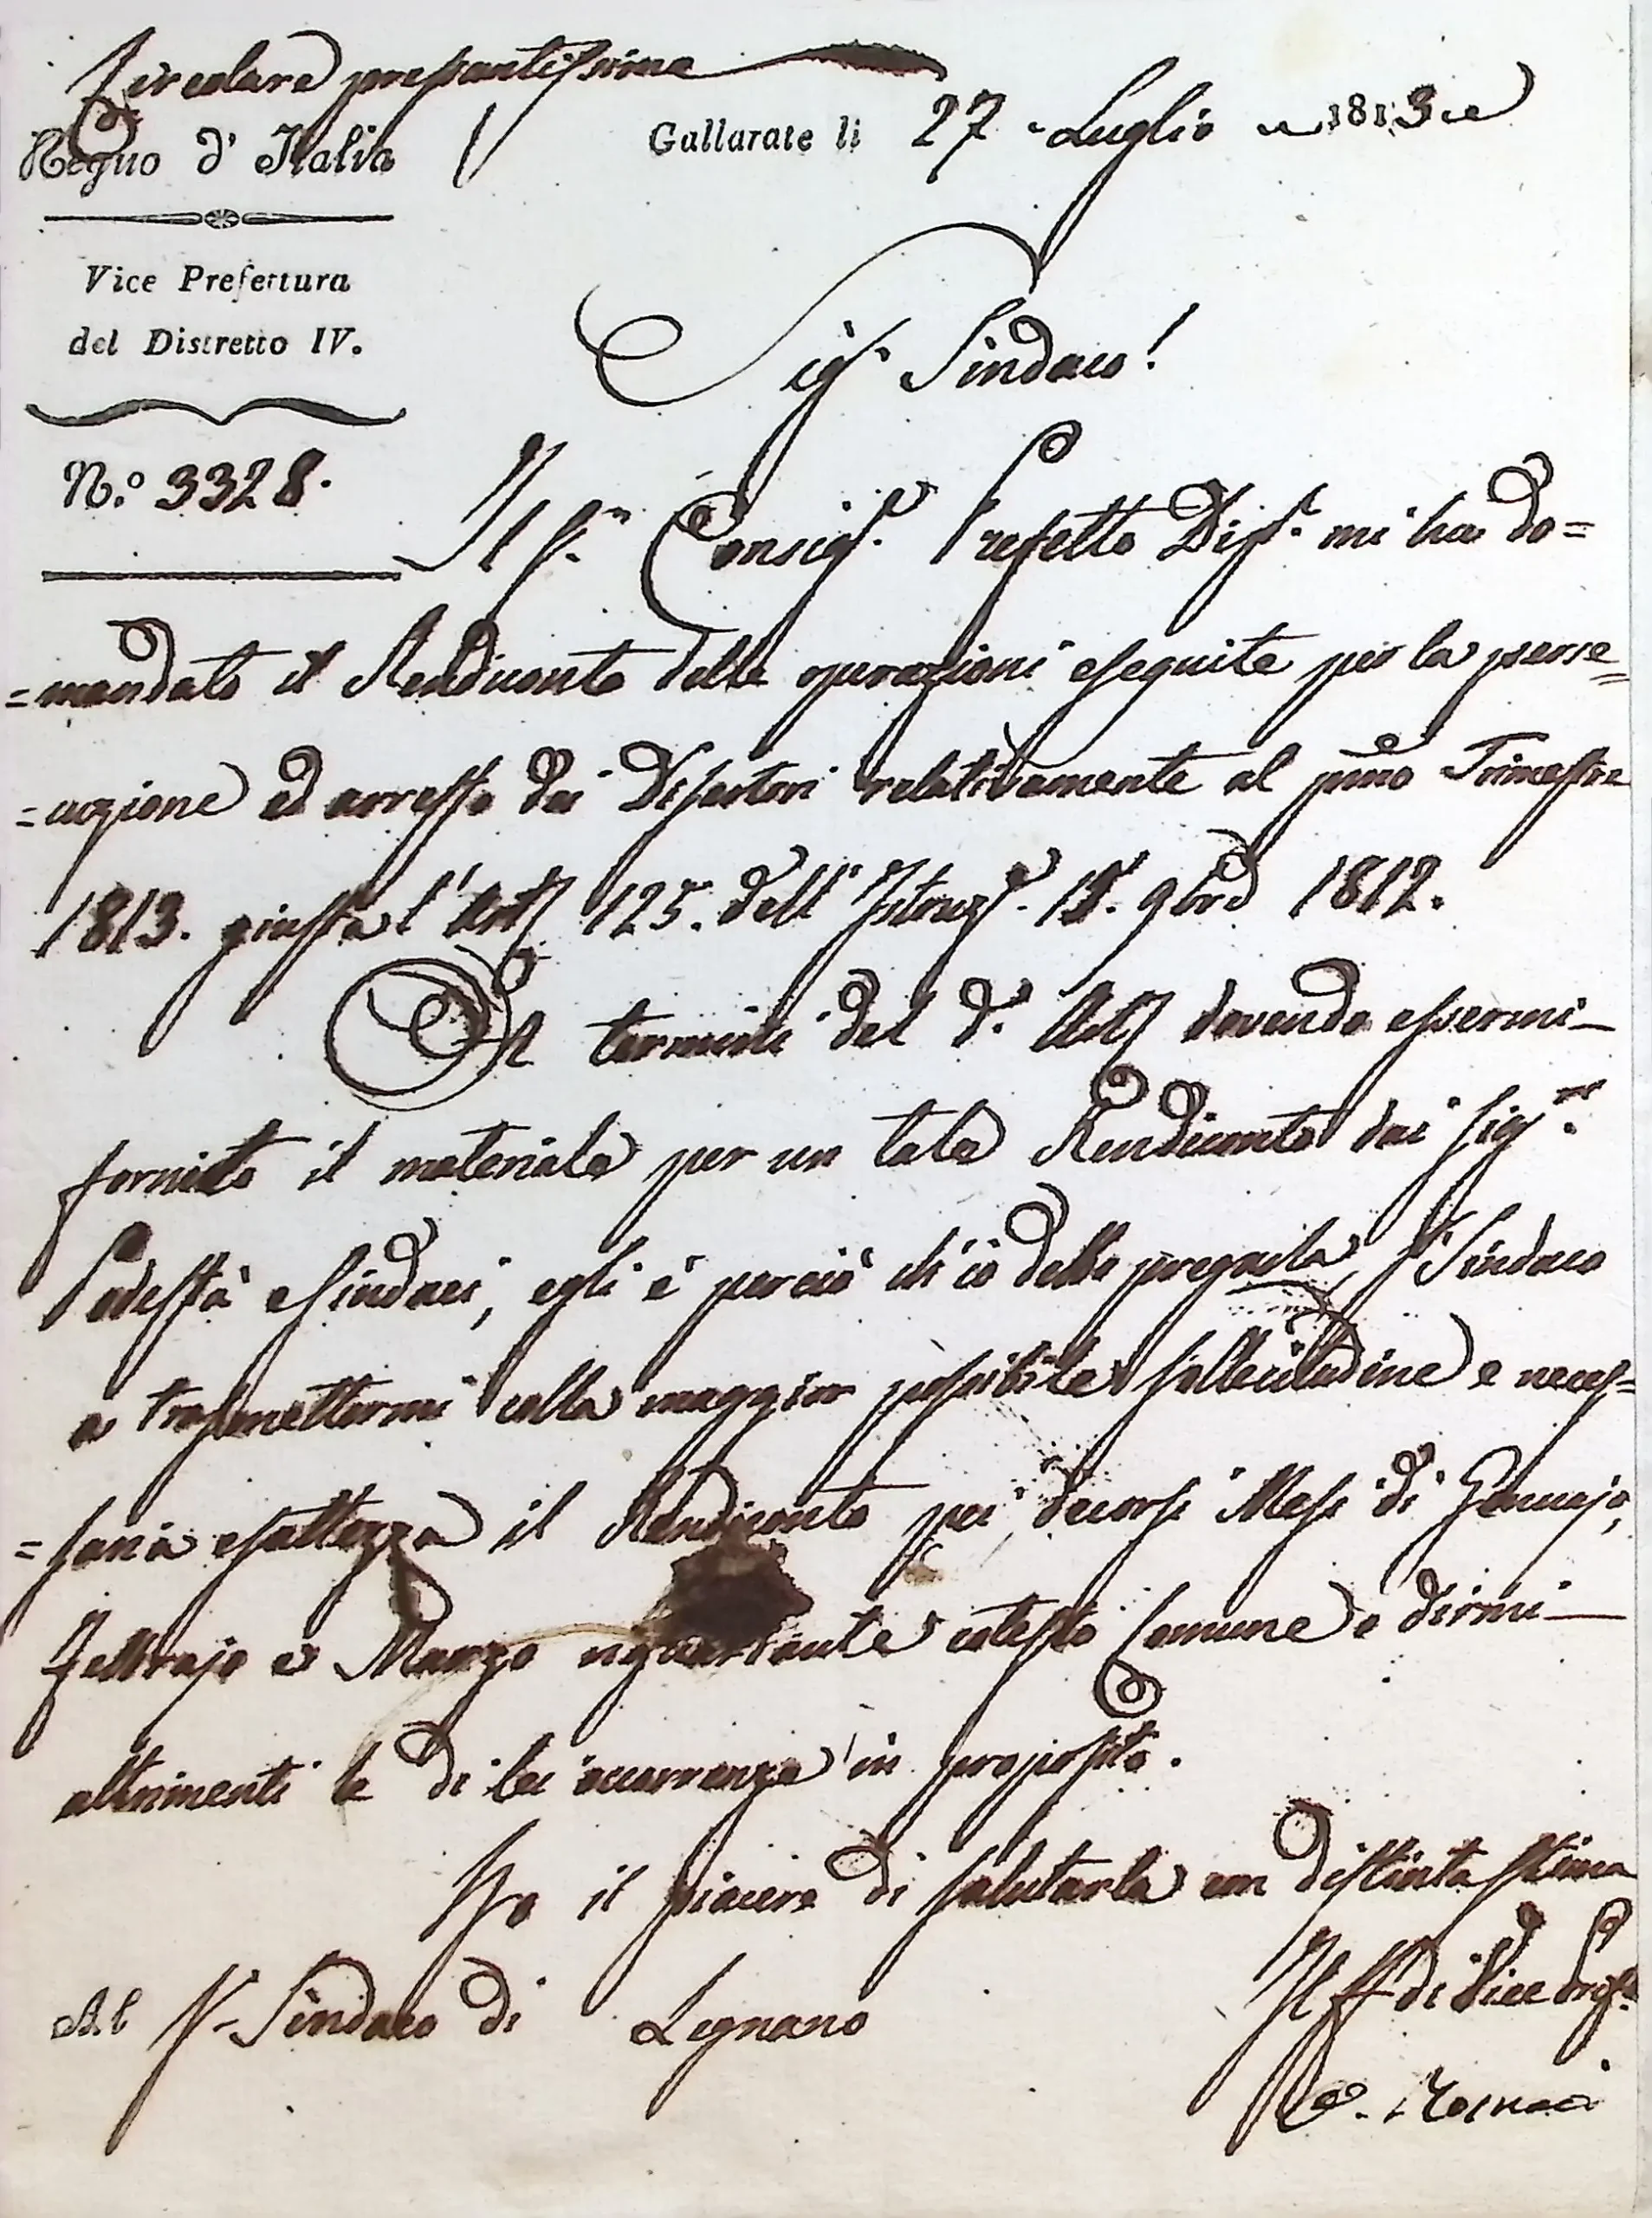 Circolare pressantissima
Regno d' Italia
Gallarate li 27 Luglio 1813
Vice Prefettura
del Distretto IV.
Sigr. Sindaco!
N.o 3328.
Il Sr. Consigre. Prefetto Dipe. mi ha do=
=mandato il Rendiconto delle operazioni eseguite per la perse=
=cuzione ed arresto dei Disertori relativamente al pmo Trimestre
1813. giusta l'Art 125. dell' Istruze. 9bre 1812.
A termini del do. Art dovendo essermi
fornito il materiale per un tale Rendiconto dai Sigri.
Podestà e Sindaci, egli è perciò ch'io debbo pregarla, Sr Sindaco
a trasmettermi colla maggior possibile sollecitudine e neces=
=saria esattezza il Rendiconto pei decorsi Mesi di Gennajo,
Febbrajo e Marzo riguardante cotesto Comune o dirmi
altrimenti le di lei occorrenze in proposito.
Ho il piacere di salutarla con distinta stima
Il ff di Vice Prefo.
Al Sr. Sindaco di Legnano